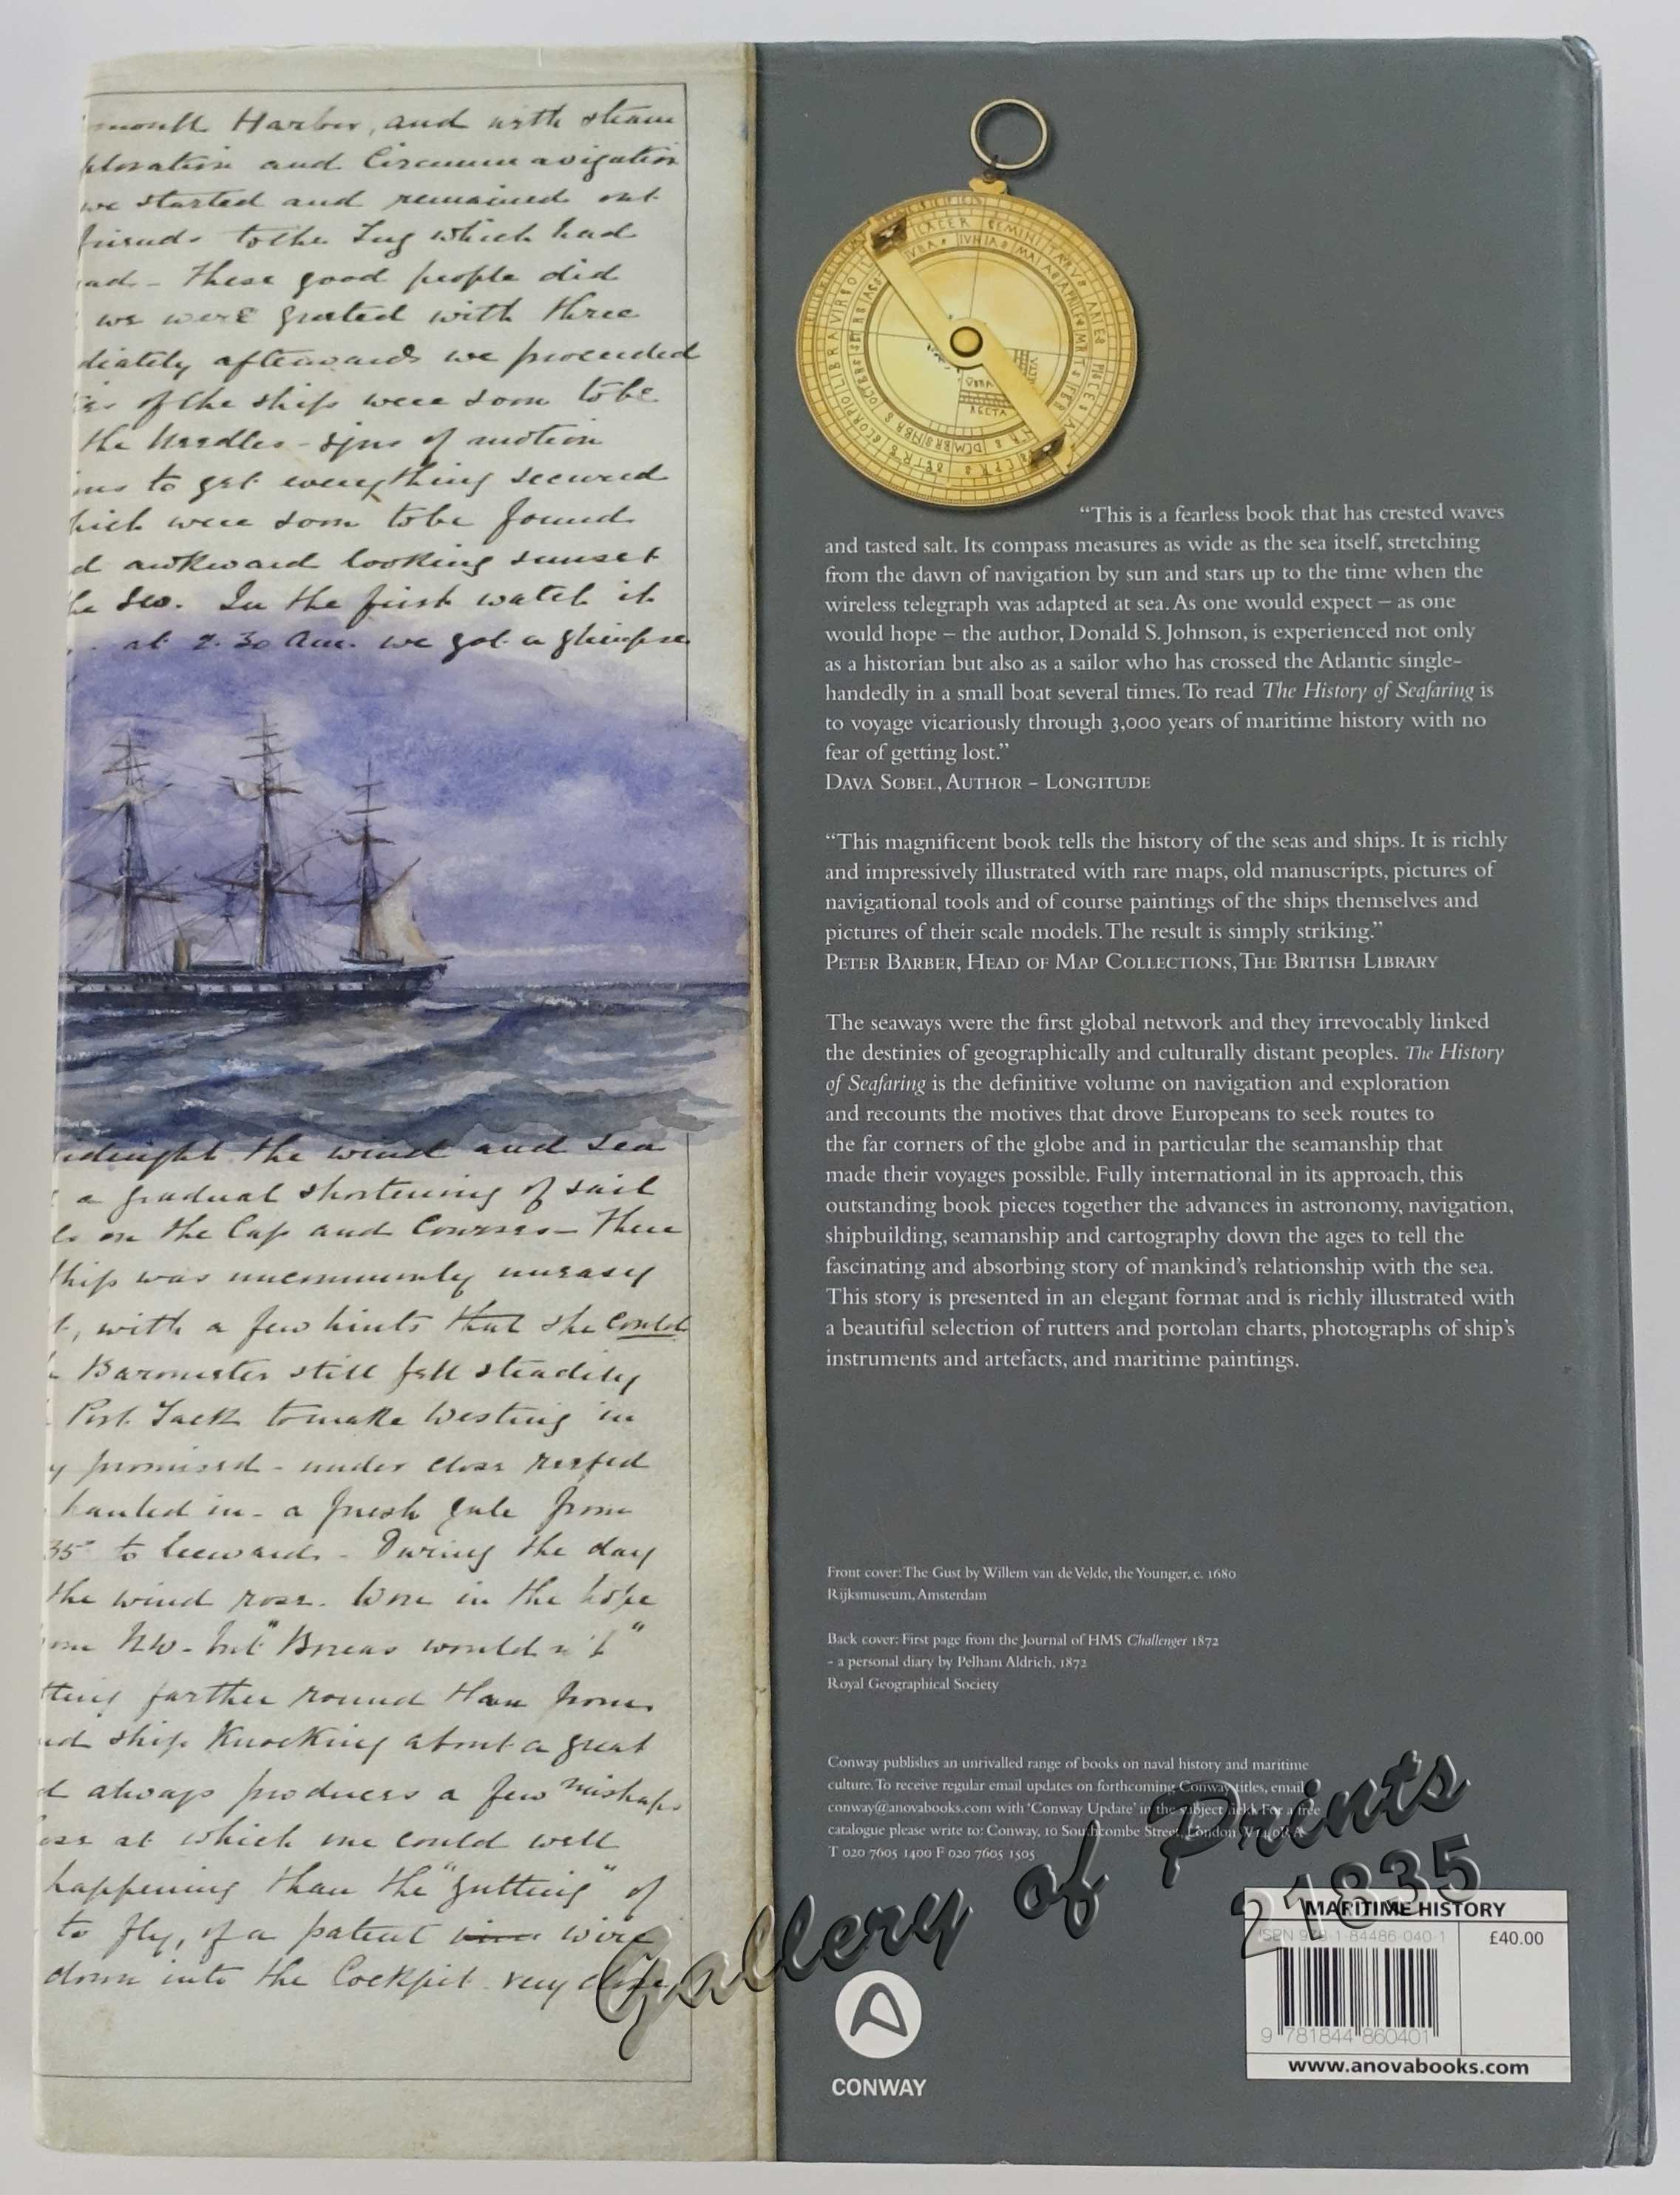 Harbor, and with steam
and Circumnavigation
we started and remained out
friends to the Tug which had
These good people did
we were greeted with three
afterwards we proceeded
of the ship were soon to be
the Needles - signs of motion
to get everything secured
which were soon to be found
awkward looking sunset
In the first watch it
at 2.30 Am. we got a glimpse
the wind and sea
a gradual shortening of sail
on the Cap and Courses - There
ship was uncommonly uneasy
with a few hints that she could
Barometer still fell steadily
Port Tack to make Westing in
promised - under close reefed
hauled in - a fresh gale from
35° to leeward - During the day
the wind rose. Wore in the hope
NW - but "Boreas wouldn't"
farther round than from
ship knocking about a great
always produces a few mishaps
at which one could well
happening than the "gutting" of
to fly, of a patent wire
down into the Cockpit very
CANCER GEMINI
VMBRA
RECTA
“This is a fearless book that has crested waves
and tasted salt. Its compass measures as wide as the sea itself, stretching
from the dawn of navigation by sun and stars up to the time when the
wireless telegraph was adapted at sea. As one would expect – as one
would hope – the author, Donald S. Johnson, is experienced not only
as a historian but also as a sailor who has crossed the Atlantic single-
handedly in a small boat several times. To read The History of Seafaring is
to voyage vicariously through 3,000 years of maritime history with no
fear of getting lost.”
DAVA SOBEL, AUTHOR – LONGITUDE
“This magnificent book tells the history of the seas and ships. It is richly
and impressively illustrated with rare maps, old manuscripts, pictures of
navigational tools and of course paintings of the ships themselves and
pictures of their scale models. The result is simply striking.”
PETER BARBER, HEAD OF MAP COLLECTIONS, THE BRITISH LIBRARY
The seaways were the first global network and they irrevocably linked
the destinies of geographically and culturally distant peoples. The History
of Seafaring is the definitive volume on navigation and exploration
and recounts the motives that drove Europeans to seek routes to
the far corners of the globe and in particular the seamanship that
made their voyages possible. Fully international in its approach, this
outstanding book pieces together the advances in astronomy, navigation,
shipbuilding, seamanship and cartography down the ages to tell the
fascinating and absorbing story of mankind’s relationship with the sea.
This story is presented in an elegant format and is richly illustrated with
a beautiful selection of rutters and portolan charts, photographs of ship’s
instruments and artefacts, and maritime paintings.
Front cover: The Gust by Willem van de Velde, the Younger, c. 1680
Rijksmuseum, Amsterdam
Back cover: First page from the Journal of HMS Challenger 1872
- a personal diary by Pelham Aldrich, 1872
Royal Geographical Society
Conway publishes an unrivalled range of books on naval history and maritime
culture. To receive regular email updates on forthcoming Conway titles, email
conway@anovabooks.com with ‘Conway Update’ in the subject For a free
catalogue please write to: Conway, 10 Southcombe Street, London
T 020 7605 1400 F 020 7605 1505
Gallery of Prints
21835
MARITIME HISTORY
ISBN 978-1-84486-040-1
£40.00
9 781844 860401
www.anovabooks.com
CONWAY